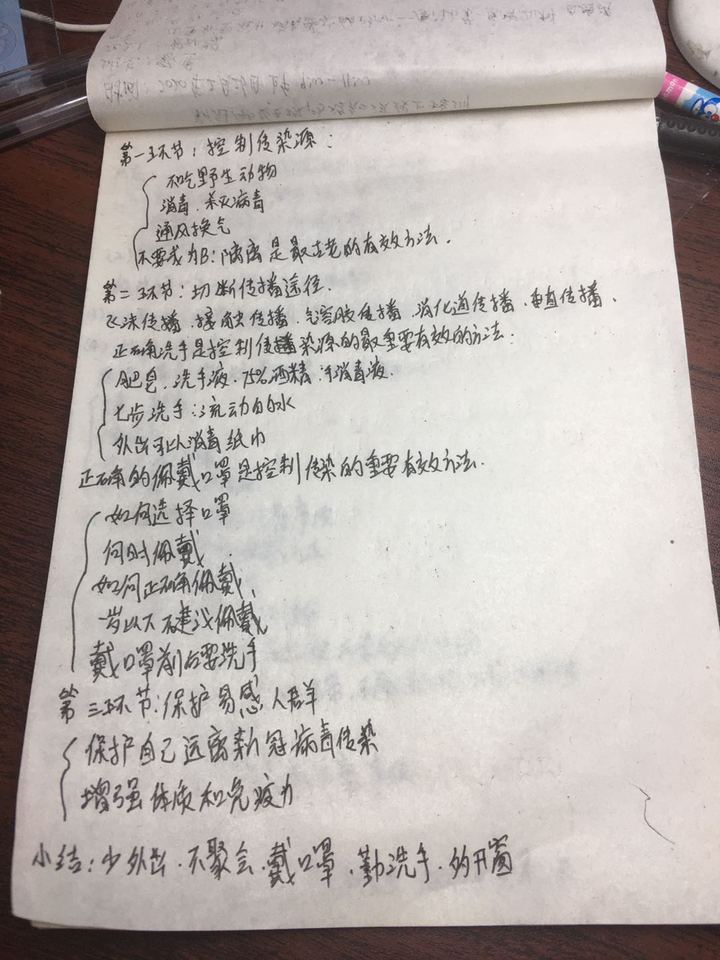 第一环节：控制传染源：
不吃野生动物
消毒.杀灭病毒
通风换气
不要成为B：隔离是最古老的有效方法.
第二环节：切断传播途径.
飞沫传播.接触传播.气溶胶传播.消化道传播.垂直传播.
正确洗手是控制传播染源的最重要有效的方法：
肥皂.洗手液.75%酒精.手消毒液.
七步洗手：流动的水
外出可以消毒纸巾
正确的佩戴口罩是控制传染的重要有效方法.
如何选择口罩
何时佩戴
如何正确佩戴
一岁以下不建议佩戴
戴口罩前后要洗手
第三环节：保护易感人群
保护自己远离新冠病毒传染
增强体质和免疫力
小结：少外出.不聚会.戴口罩.勤洗手.开窗